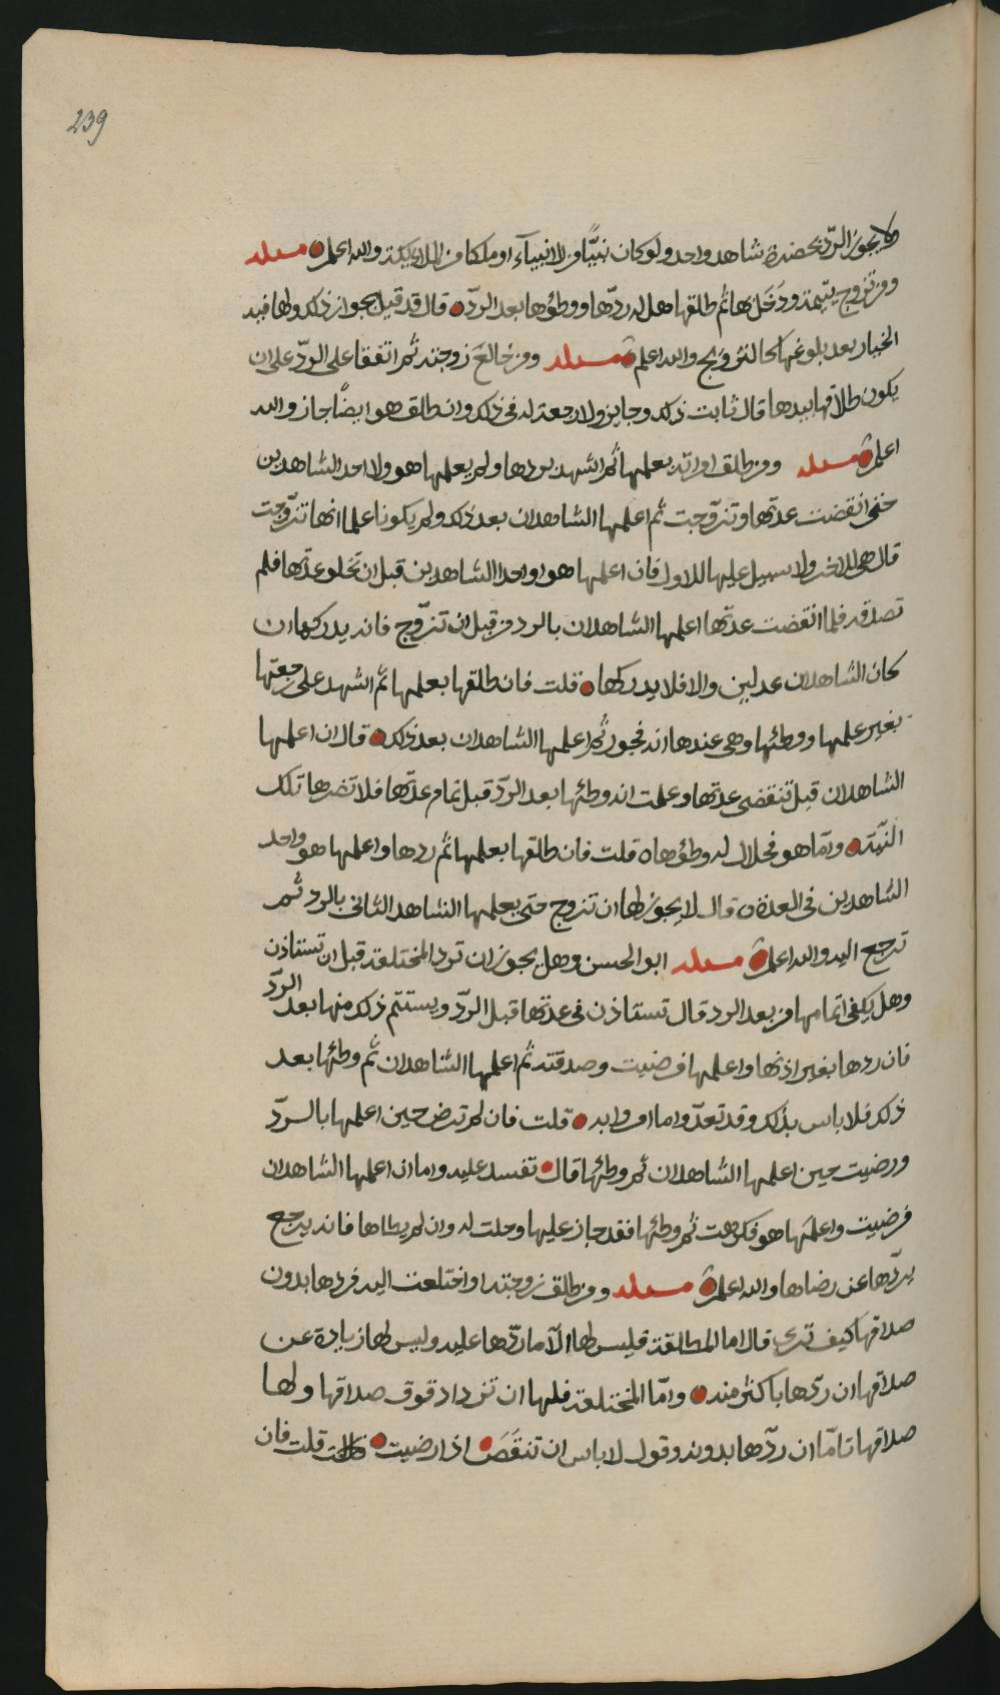 239
ولا يجوز الردّ بحضرة شاهد واحد ولو كان نبيًّا من الانبيآء او ملكا من الملايكة والله اعلم مسئلة
ومن تزوج يتيمة ودخل بها ثم طلقها هل له ردّها ووطؤها بعد الردّ قال قد قيل بجواز ذلك ولها فيه
الخيار بعد بلوغها كالتزويج والله اعلم مسئلة ومن خالع زوجته ثم اتفقا على الردّ على ان
يكون طلاقها بيدها قال ثابت ذلك وجايز ولا رجعة له في ذلك وان طلق هو ايضًا جاز والله
اعلم مسئلة ومن طلق امراته بعلمها ثم اشهد بردها ولم يعلمها هو ولا احد الشاهدين
حتى انقضت عدتها وتزوّجت ثم اعلمها الشاهدان بعد ذلك ولم يكونا علما انها تزوّجت
قال هي للاخر ولا سبيل عليها للاول فان اعلمها هو او احد الشاهدين قبل ان تخلو عدّتها فلم
تصدقه فلما انقضت عدتها اعلمها الشاهدان بالرد من قبل ان تزوّج فانه يدركها ان
كان الشاهدان عدلين والا فلا يدركها قلت فان طلّقها بعلمها ثم اشهد على رجعتها
بغير علمها ووطئها وهي عندها انه فجور ثم اعلمها الشاهدان بعد ذلك قال ان اعلمها
الشاهدان قبل تنقضي عدتها وعلمت انه وطئها بعد الردّ قبل تمام عدّتها فلا تضرها تلك
النيّة وامّا هو فحلال له وطؤها قلت فان طلقها بعلمها ثم ردها واعلمها هو واحد
الشاهدين في العدة قال لا يجوز لها ان تزوج حتى يعلمها الشاهد الثاني بالرد ثم
ترجع اليه والله اعلم مسئلة ابو الحسن وهل يجوز ان ترد المختلعة قبل ان تستاذن
وهل يكفي اتمامها من بعد الرد قال تستاذن في عدتها قبل الردّ ويستتم ذلك منها بعد الردّ
فان ردها بغير اذنها واعلمها فرضيت وصدقته ثم اعلمها الشاهدان ثم وطئها بعد
ذلك فلا باس بذلك وقد تعدّوا ما امروا به قلت فان لم ترض حين اعلمها بالردّ
ورضيت حين اعلمها الشاهدان ثم وطئها قال تفسد عليه واما ان اعلمها الشاهدان
فرضيت واعلمها هو فكرهت ثم وطئها فقد جاز عليها وحلت له وان لم يطاها فانه يرجع
يردّها عن رضاها والله اعلم مسئلة ومن طلق زوجته او اختلعت اليه فردها بدون
صداقها كيف ترى قال اما المطلقة فليس لها الّا ما ردّها عليه وليس لها زيادة عن
صداقها ان ردّها باكثر منه وامّا المختلعة فلها ان تزداد فوق صداقها ولها
صداقها تامّا ان ردّها بدونه وقول لا باس ان تنقص اذا رضيت قلت فان